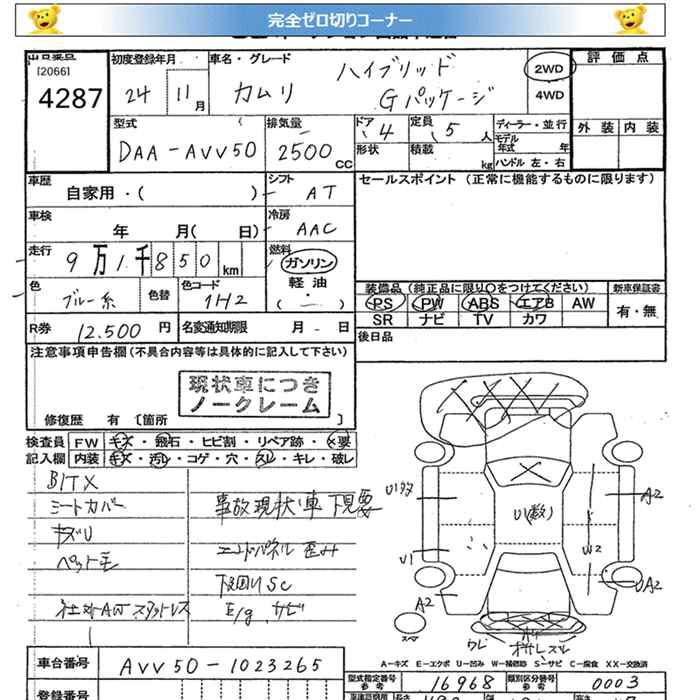 完全ゼロ切りコーナー
出品番号
[2066]
4287
初度登録年月
24 11月
車名・グレード
カムリ
ハイブリッド
Gパッケージ
2WD
4WD
評価点
外装 内装
型式
DAA-AVV50
排気量
2500cc
ドア 4
形状
定員 5人
積載 kg
ディーラー・並行
モデル年式 年
ハンドル 左・右
車歴
自家用・( )
シフト AT
セールスポイント (正常に機能するものに限ります)
車検
年 月( 日)
冷房 AAC
走行
9万1千850km
燃料
ガソリン
軽油
( - )
色
ブルー系
色替
色コード
1H2
装備品 (純正品に限り○をつけてください)
PS PW ABS エアB AW
SR ナビ TV カワ
新車保証書
有・無
R券 12.500円
名変通知期限 月 日
後日品
注意事項申告欄 (不具合内容等は具体的に記入して下さい)
現状車につき
ノークレーム
修復歴 有 [箇所 ]
検査員
記入欄
FW キズ・飛石・ヒビ割・リペア跡・×要
内装 キズ・汚レ・コゲ・穴・スレ・キレ・破レ
BITX
シートカバー
キズU
ペット毛
社外AWスタットレス
事故現状車下見要
エンドパネル歪み
下回りSC
E/gサビ
U1
U(数)
W2
A2
UA2
A2
スペ
A-キズ E-エクボ U-凹み W-補修跡 S-サビ C-腐食 XX-交換済
車台番号
AVV50-1023265
登録番号
型式指定番号
参考
16968
類別区分番号
参考
0003